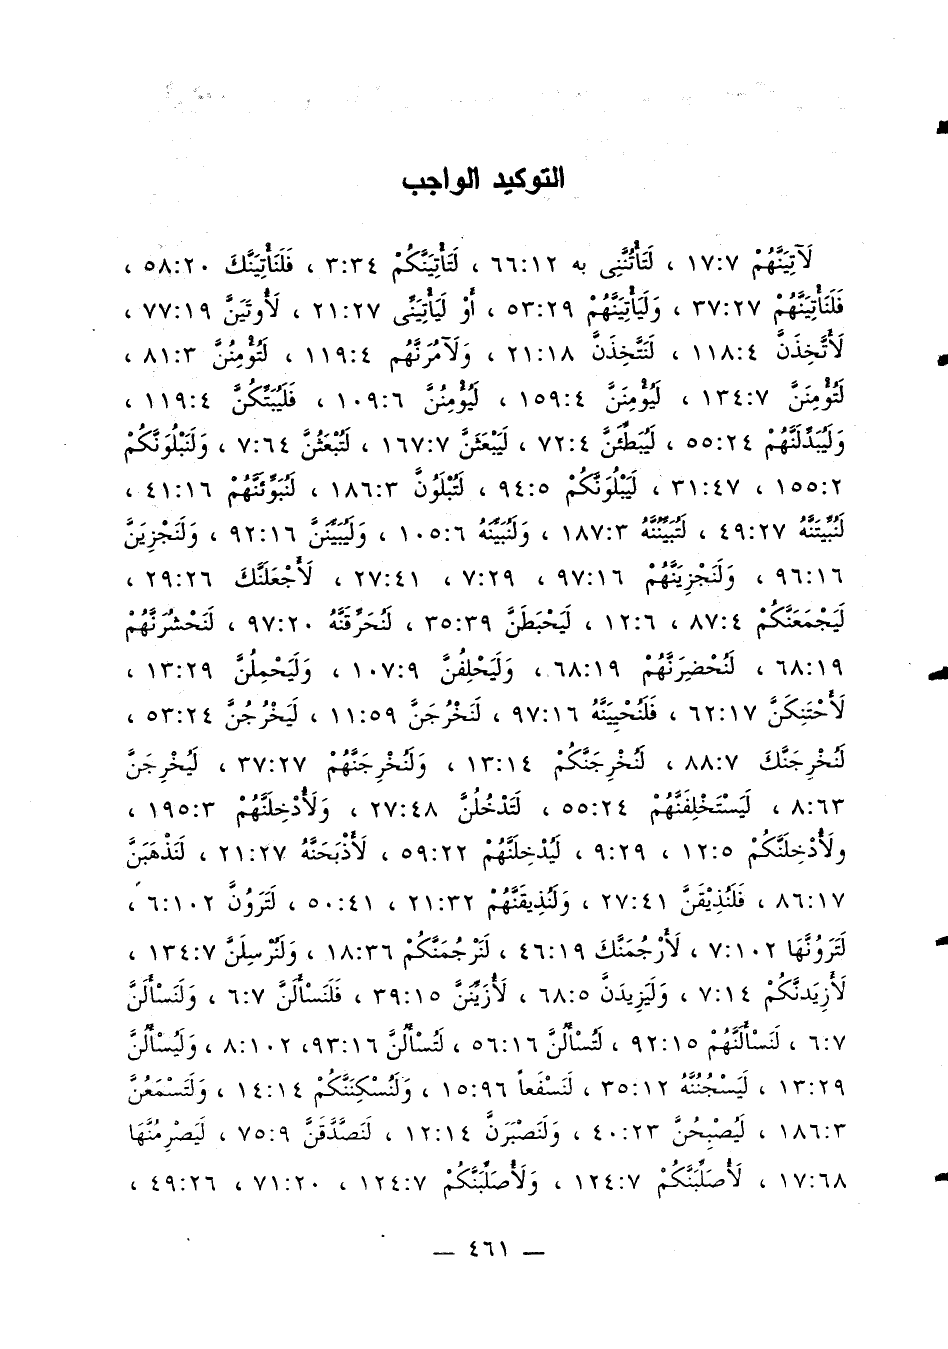 التوكيد الواجب
لَآتِيَنَّهُمْ ١٧:٧ ، لَتَأْتُنَّنِى به ٦٦:١٢ ، لَتَأْتِيَنَّكُمْ ٣:٣٤ ، فَلَنَأْتِيَنَّكَ ٥٨:٢٠ ،
فَلَنَأْتِيَنَّهُمْ ٣٧:٢٧ ، وَلَيَأْتِيَنَّهُمْ ٥٣:٢٩ ، أَوْ لَيَأْتِيَنِّى ٢١:٢٧ ، لَأُوتَيَنَّ ٧٧:١٩ ،
لَأَتَّخِذَنَّ ١١٨:٤ ، لَنَتَّخِذَنَّ ٢١:١٨ ، وَلَآمُرَنَّهُم ١١٩:٤ ، لَتُؤْمِنُنَّ ٨١:٣ ،
لَنُؤْمِنَنَّ ١٣٤:٧ ، لَيُؤْمِنَنَّ ١٥٩:٤ ، لَيُؤْمِنُنَّ ١٠٩:٦ ، فَلَيُبَتِّكُنَّ ١١٩:٤ ،
وَلَيُبَدِّلَنَّهُمْ ٥٥:٢٤ ، لَيُبَطِّئَنَّ ٧٢:٤ ، لَيَبْعَثَنَّ ١٦٧:٧ ، لَتُبْعَثُنَّ ٧:٦٤ ، وَلَنَبْلُوَنَّكُمْ
١٥٥:٢ ، ٣١:٤٧ ، لَيَبْلُوَنَّكُمْ ٩٤:٥ ، لَتُبْلَوُنَّ ١٨٦:٣ ، لَنُبَوِّئَنَّهُمْ ٤١:١٦ ،
لَنُبَيِّتَنَّهُ ٤٩:٢٧ ، لَتُبَيِّنُنَّهُ ١٨٧:٣ ، وَلَنُبَيِّنَهُ ١٠٥:٦ ، وَلَيُبَيِّنَنَّ ٩٢:١٦ ، وَلَنَجْزِيَنَّ
٩٦:١٦ ، وَلَنَجْزِيَنَّهُمْ ٩٧:١٦ ، ٧:٢٩ ، ٢٧:٤١ ، لَأَجْعَلَنَّكَ ٢٩:٢٦ ،
لَيَجْمَعَنَّكُمْ ٨٧:٤ ، ١٢:٦ ، لَيَحْبَطَنَّ ٣٥:٣٩ ، لَنُحَرِّقَنَّهُ ٩٧:٢٠ ، لَنَحْشُرَنَّهُمْ
٦٨:١٩ ، لَنُحْضِرَنَّهُمْ ٦٨:١٩ ، وَلَيَحْلِفُنَّ ١٠٧:٩ ، وَلَيَحْمِلُنَّ ١٣:٢٩ ،
لَأَحْتَنِكَنَّ ٦٢:١٧ ، فَلَنُحْيِيَنَّهُ ٩٧:١٦ ، لَنَخْرُجَنَّ ١١:٥٩ ، لَيَخْرُجُنَّ ٥٣:٢٤ ،
لَنُخْرِجَنَّكَ ٨٨:٧ ، لَنُخْرِجَنَّكُمْ ١٣:١٤ ، وَلَنُخْرِجَنَّهُمْ ٣٧:٢٧ ، لَيُخْرِجَنَّ
٨:٦٣ ، لَيَسْتَخْلِفَنَّهُمْ ٥٥:٢٤ ، لَتَدْخُلُنَّ ٢٧:٤٨ ، وَلَأُدْخِلَنَّهُمْ ١٩٥:٣ ،
ولَأُدْخِلَنَّكُمْ ١٢:٥ ، ٩:٢٩ ، لَيُدْخِلَنَّهُمْ ٥٩:٢٢ ، لَأَذْبَحَنَّهُ ٢١:٢٧ ، لَنَذْهَبَنَّ
٨٦:١٧ ، فَلَنُذِيْقَنَّ ٢٧:٤١ ، وَلَنُذِيقَنَّهُمْ ٢١:٣٢ ، ٥٠:٤١ ، لَتَرَوُنَّ ٦:١٠٢ ،
لَتَرَوُنَّهَا ٧:١٠٢ ، لَأَرْجُمَنَّكَ ٤٦:١٩ ، لَنَرْجُمَنَّكُمْ ١٨:٣٦ ، وَلَنُرْسِلَنَّ ١٣٤:٧ ،
لَأَزِيدَنَّكُمْ ٧:١٤ ، وَلَيَزِيدَنَّ ٦٨:٥ ، لَأُزَيِّنَنَّ ٣٩:١٥ ، فَلَنَسْأَلَنَّ ٦:٧ ، وَلَنَسْأَلَنَّ
٦:٧ ، لَنَسْأَلَنَّهُمْ ٩٢:١٥ ، لَتُسْأَلُنَّ ٥٦:١٦ ، لَتُسْأَلُنَّ ٩٣:١٦، ٨:١٠٢ ، وَلَيُسْأَلُنَّ
١٣:٢٩ ، لَيَسْجُنُنَّهُ ٣٥:١٢ ، لَنَسْفَعاً ١٥:٩٦ ، وَلَنُسْكِنَنَّكُمْ ١٤:١٤ ، وَلَتَسْمَعُنَّ
١٨٦:٣ ، لَيُصْبِحُنَّ ٤٠:٢٣ ، وَلَنَصْبَرَنَّ ١٢:١٤ ، لَنَصَّدَّقَنَّ ٧٥:٩ ، لَيَصْرِمُنَّهَا
١٧:٦٨ ، لَأُصَلِّبَنَّكُمْ ١٢٤:٧ ، وَلَأُصَلِّبَنَّكُمْ ١٢٤:٧ ، ٧١:٢٠ ، ٤٩:٢٦ ،
— ٤٦١ —